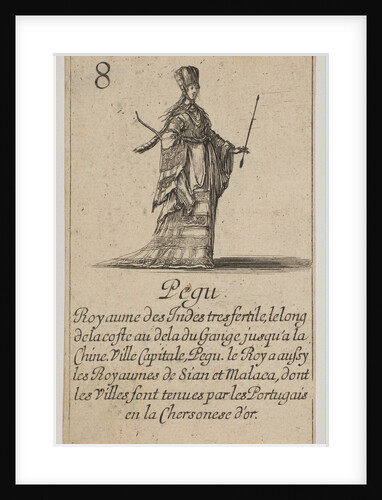 8
Pegu.
Royaume des Indes tres fertile, le long
de la coste au dela du Gange jusqu'a la
Chine. Ville Capitale, Pegu. le Roy a aussy
les Royaumes de Sian et Malaca, dont
les Villes sont tenues par les Portugais
en la Chersonese d'or.